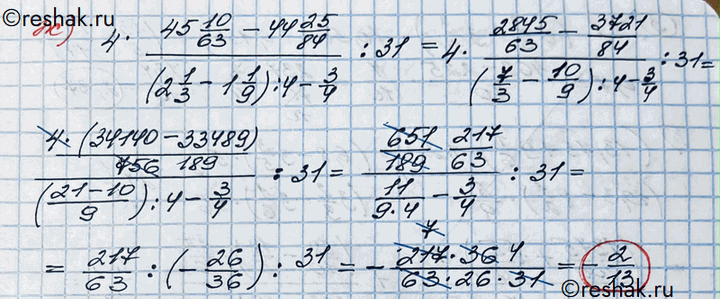 ©reshak.ru
ж) 4 · (45 10/63 − 44 25/84) / ((2 1/3 − 1 1/9) : 4 − 3/4) : 31 = 4 · (2845/63 − 3721/84) / ((7/3 − 10/9) : 4 − 3/4) : 31 =
(4 · (34140 − 33489) / 756 189) / (((21 − 10)/9) : 4 − 3/4) : 31 = (651/189 217/63) / (11/(9·4) − 3/4) : 31 =
= 217/63 : (− 26/36) : 31 = − (217 7 · 36 4) / (63 · 26 · 31) = − 2/13
©reshak.ru